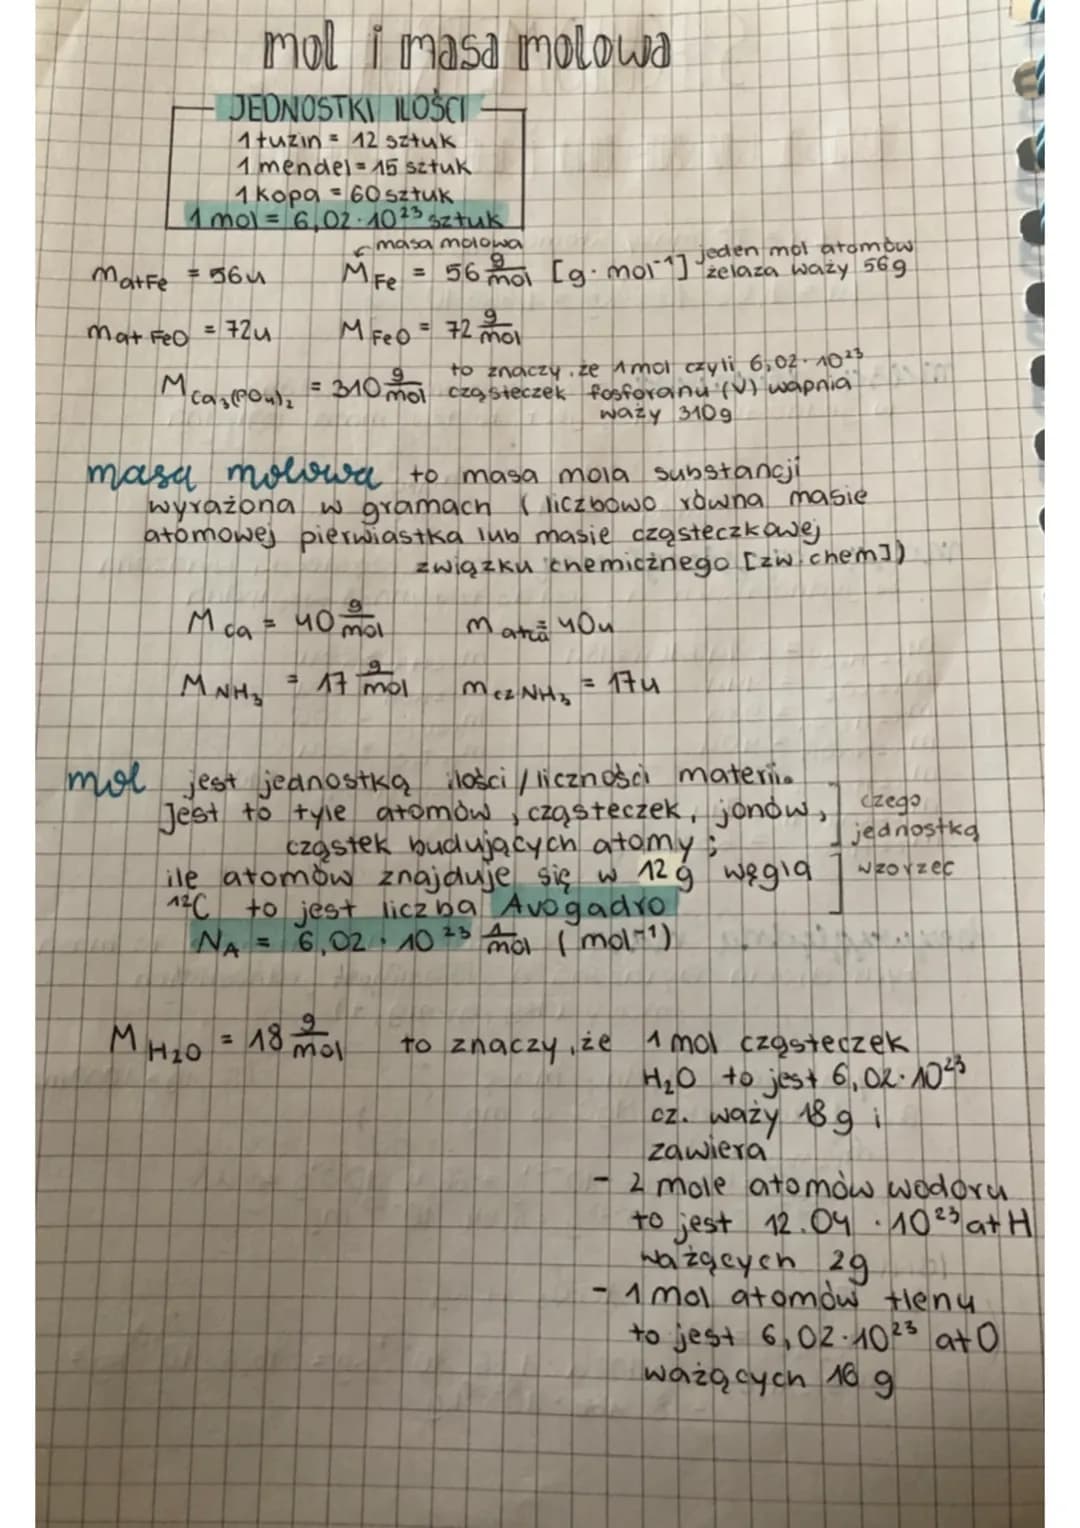 mol i masa molowa
JEDNOSTKI ILOŚCI
1 tuzin = 12 sztuk
1 mendel = 15 sztuk
1 kopa = 60 sztuk
1 mol = 6,02 · 10²³ sztuk
masa molowa
m at Fe = 56u M Fe = 56 g/mol [g · mol⁻¹] jeden mol atomów
żelaza waży 56g
m at FeO = 72u M FeO = 72 g/mol
M Ca₃(PO₄)₂ = 310 g/mol to znaczy, że 1 mol czyli 6,02 · 10²³
cząsteczek fosforanu (V) wapnia
waży 310g
masa molowa to masa mola substancji
wyrażona w gramach ( liczbowo równa masie
atomowej pierwiastka lub masie cząsteczkowej
związku chemicznego [zw. chem])
M Ca = 40 g/mol m at Ca = 40u
M NH₃ = 17 g/mol m cz NH₃ = 17u
mol jest jednostką ilości / liczności materii.
Jest to tyle atomów, cząsteczek, jonów, czego
cząstek budujących atomy; jednostką
ile atomów znajduje się w 12g węgla wzorzec
¹²C to jest liczba Avogadro
N_A = 6,02 · 10²³ 1/mol (mol⁻¹)
M H₂O = 18 g/mol to znaczy, że 1 mol cząsteczek
H₂O to jest 6,02 · 10²³
cz. waży 18g i
zawiera
- 2 mole atomów wodoru
to jest 12.04 · 10²³ at H
ważących 2g
- 1 mol atomów tlenu
to jest 6,02 · 10²³ at O
ważących 16 g